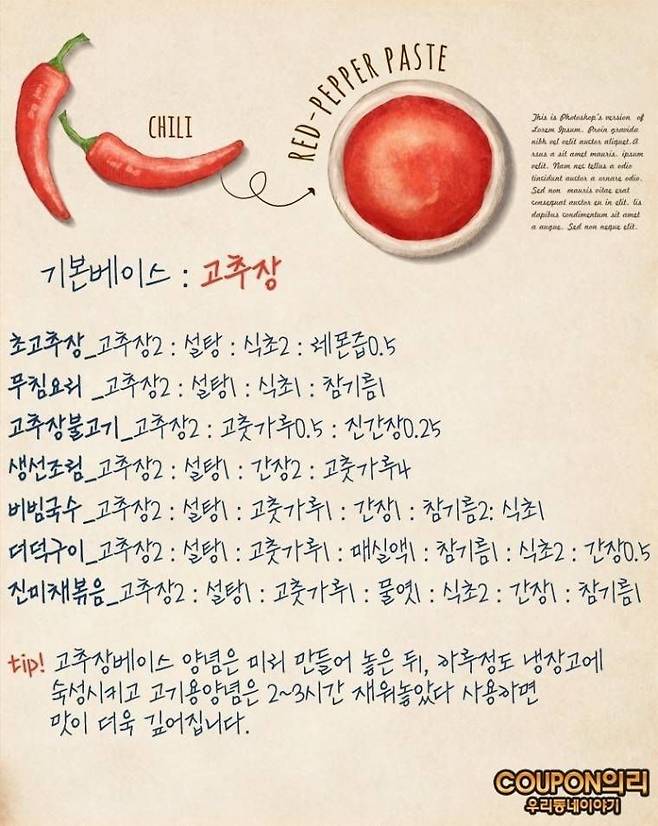 CHILI
RED-PEPPER PASTE
This is Photoshop's version of
Lorem Ipsum. Proin gravida
nibh vel velit auctor aliquet.A
rsus a sit amet mauris. ipsum
velit. Nam nec tellus a odio
tincidunt auctor a ornare odio.
Sed non mauris vitae erat
consequat auctor eu in elit. lis
dapibus condimentum sit amet
a augue. Sed non neque elit.
기본베이스 : 고추장
초고추장_고추장2 : 설탕 : 식초2 : 레몬즙0.5
무침요리 _고추장2 : 설탕1 : 식초1 : 참기름1
고추장불고기_고추장2 : 고춧가루0.5 : 진간장0.25
생선조림_고추장2 : 설탕1 : 간장2 : 고춧가루4
비빔국수_고추장2 : 설탕1 : 고춧가루1 : 간장1 : 참기름2: 식초1
더덕구이_고추장2 : 설탕1 : 고춧가루1 : 매실액1 : 참기름1 : 식초2 : 간장0.5
진미채볶음_고추장2 : 설탕1 : 고춧가루1 : 물엿1 : 식초2 : 간장1 : 참기름1
tip! 고추장베이스 양념은 미리 만들어 놓은 뒤, 하루정도 냉장고에
숙성시키고 고기용양념은 2~3시간 재워놓았다 사용하면
맛이 더욱 깊어집니다.
COUPON의리
우리동네이야기